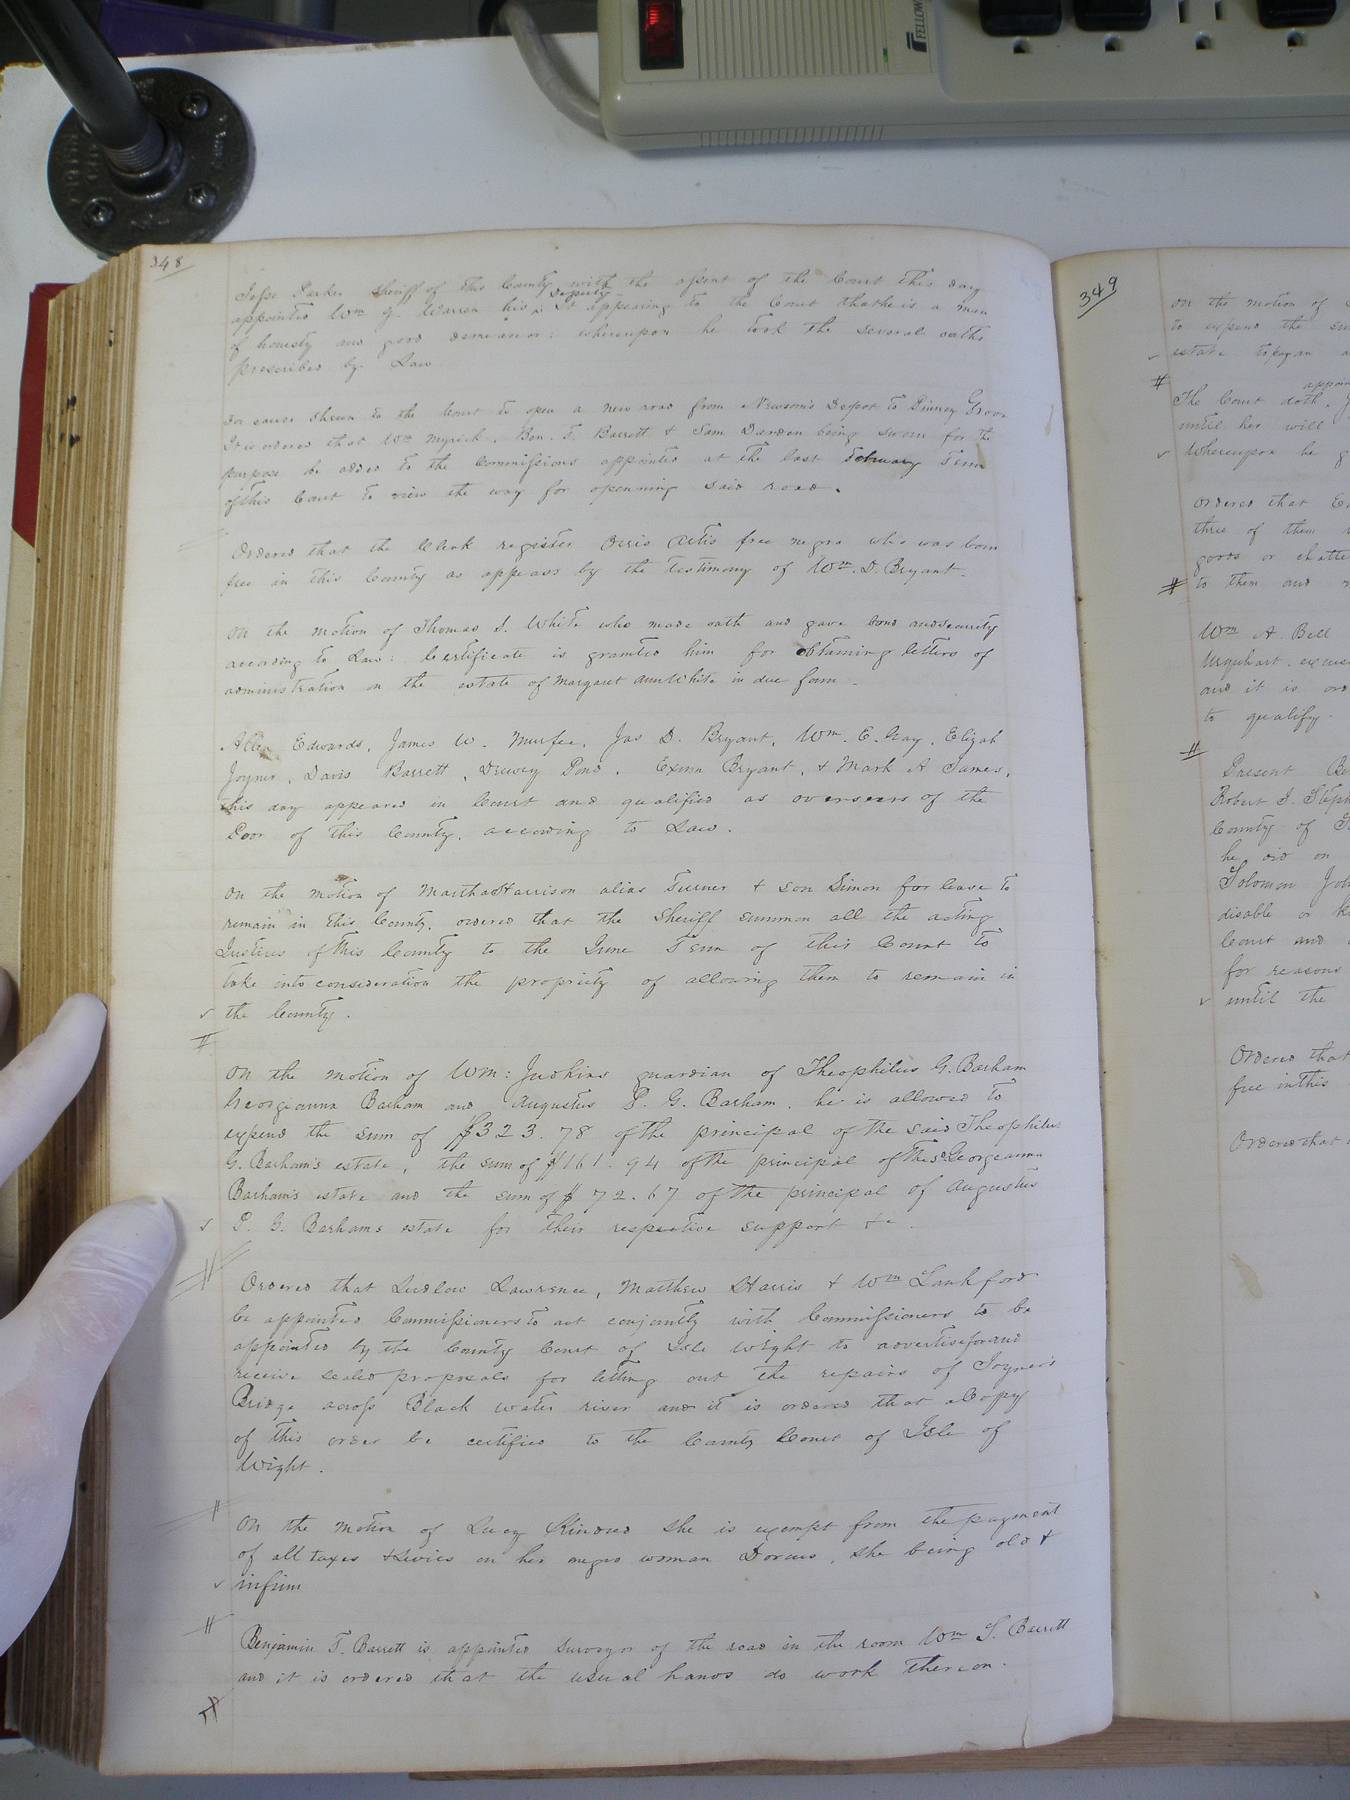 348
Jesse Parker Sheriff of this County with the assent of the Court this day
appointed Wm G. Warren his Deputy It appearing to the Court that he is a man
of honesty and good demeanor: whereupon he took the several oaths
prescribed by Law
For cause shewn to the Court to open a new road from Newsom's Depot to Piney Grove
It is ordered that Wm Myrick, Ben. T. Barrett & Sam Darden being sworn for the
purpose be added to the Commissions appointed at the last February Term
of this Court to view the way for openning said road.
Ordered that the Clerk register Orris Artis free negro who was born
free in this County as appears by the testimony of Wm. D. Bryant.
On the motion of Thomas S. White who made oath and gave bond and security
according to Law: Certificate is granted him for obtaining letters of
administration on the estate of Margaret Ann White in due form.
Allen Edwards, James W. Murfee, Jas D. Bryant, Wm. E. Gay, Elijah
Joyner, Davis Barrett, Drewry Pond, Exum Bryant, & Mark A James,
this day appeared in Court and qualified as overseers of the
Poor of this County, according to Law.
On the motion of Martha Harrison alias Turner & son Simon for leave to
remain in this County, ordered that the Sheriff summon all the acting
Justices of this County to the June Term of this Court to
take into consideration the propriety of allowing them to remain in
the County.
On the motion of Wm: Judkins guardian of Theophilus G. Barham
Georgeanna Barham and Augustus P. G. Barham, he is allowed to
expend the sum of $323.78 of the principal of the said Theophilus
G. Barham's estate, the sum of $161.94 of the principal of the sd Georgeanna
Barham's estate and the sum of $72.67 of the principal of Augustus
P. G. Barhams estate for their respective support &c.
Ordered that Ludlow Lawrence, Matthew Harris & Wm Lankford
be appointed Commissioners to act conjointly with Commissioners to be
appointed by the County Court of Isle Wight to advertise for and
receive sealed proposals for letting out the repairs of Joyner's
Bridge across Black water river and it is ordered that a Copy
of this order be certified to the County Court of Isle of
Wight.
On the motion of Lucy Kindred she is exempt from the payment
of all taxes & levies on her negro woman Dorcus, she being old &
infirm
Benjamin T. Barrett is appointed Surveyor of the road in the room Wm S. Barrett
and it is ordered that the usual hands do work thereon.
349
On the motion of
to expend the
estate to pay an
appoin
The Court doth
until her will
Whereupon he g
Ordered that
three of them
goods or chatte
to them and
Wm A. Bell
Urquhart
and it is ord
to qualify.
Present
Robert J. Steph
County of
he did on
Solomon Joh
disable or
Court and
for reasons
until the
Ordered that
free in this
Ordered that
FELLOW